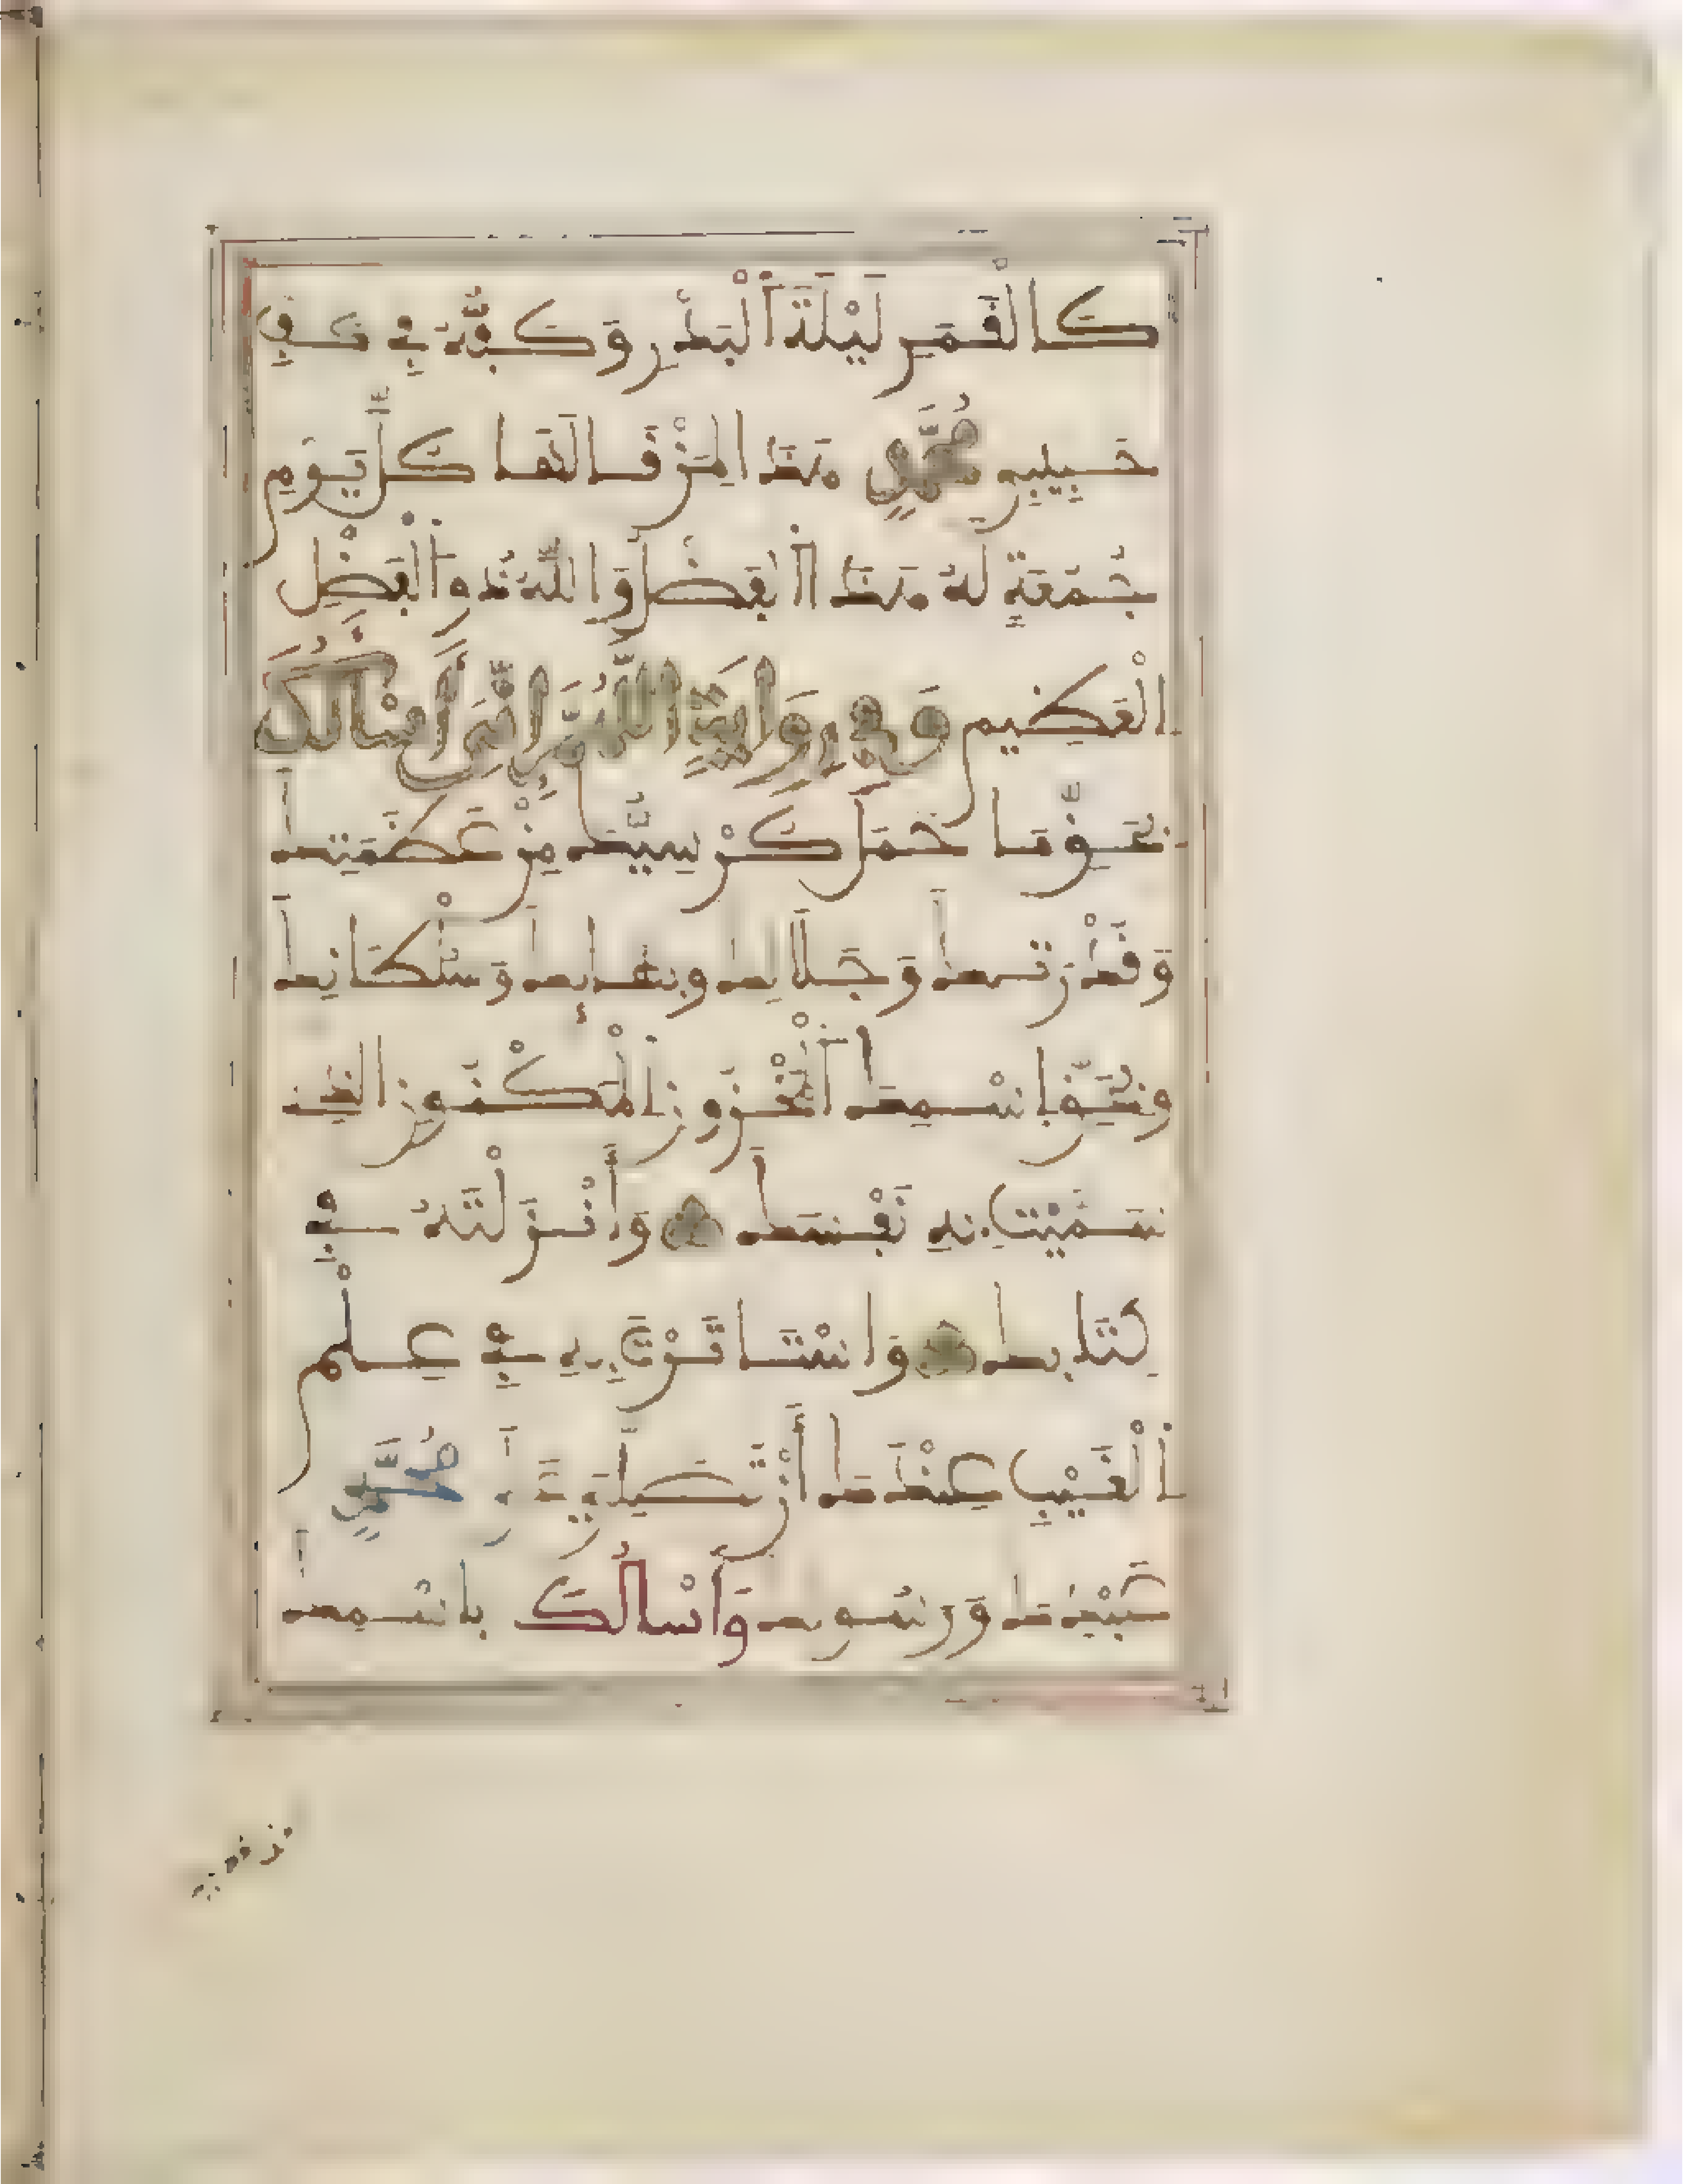 كَالْقَمَرِ لَيْلَةَ ٱلْبَدْرِ وَكَفُّهُ فِي كَفِّ
حَبِيبِهِ مُحَمَّدٍ هَذَا لِمَنْ قَالَهَا كُلَّ يَوْمِ
جُمُعَةٍ لَهُ هَذَا ٱلْفَضْلُ وَاللَّهُ ذُو ٱلْفَضْلِ
الْعَظِيمِ وَفِي رِوَايَةٍ اللَّهُمَّ إِنِّي أَسْأَلُكَ
بِحَقِّ مَا حَمَلَ كُرْسِيُّكَ مِنْ عَظَمَتِكَ
وَقُدْرَتِكَ وَجَلَالِكَ وَبَهَائِكَ وَسُلْطَانِكَ
وَبِحَقِّ اسْمِكَ ٱلْمَخْزُونِ ٱلْمَكْنُونِ الَّذِي
سَمَّيْتَ بِهِ نَفْسَكَ وَأَنْزَلْتَهُ فِي
كِتَابِكَ وَاسْتَأْثَرْتَ بِهِ فِي عِلْمِ
ٱلْغَيْبِ عِنْدَكَ أَنْ تُصَلِّيَ عَلَى مُحَمَّدٍ
عَبْدِكَ وَرَسُولِكَ وَأَسْأَلُكَ بِاسْمِكَ